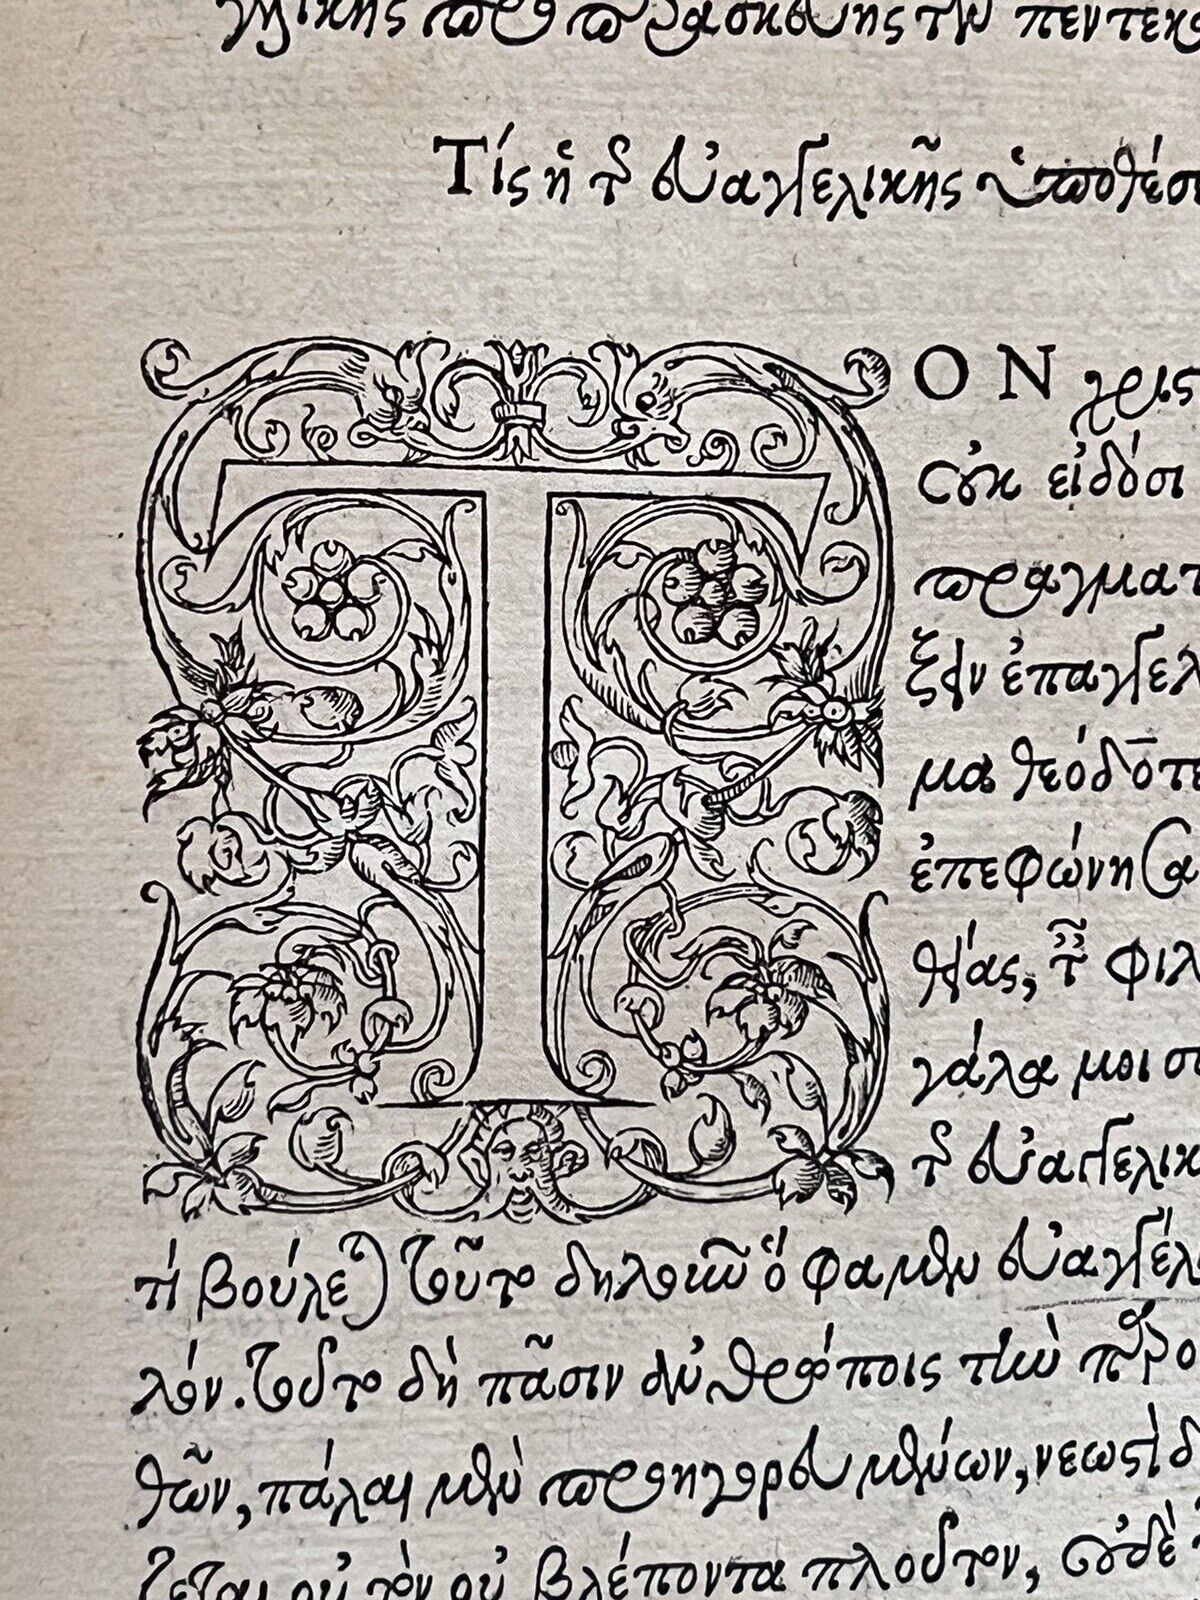 γελικῆς προπαρασκευῆς τῶν πεντεκ
Τίς ἡ τῆς εὐαγγελικῆς ὑποθέσε
ΤΟΝ χρισ
οὐκ εἰδόσι
πραγματ
ξιν ἐπαγγελ
μα θεόδοτ
ἐπεφώνησα
θείας, τῆς φιλ
γάλα μοι
τῆς εὐαγγελικ
τί βούλεται τοῦτο δηλοῦν ὅ φαμεν εὐαγγέλ
λόν. τοῦτο δὴ πᾶσιν ἀνθρώποις τὴν
θῶν, πάλαι μὲν προηγορευμένων, νεωστὶ δ
οὐ τὸν οὐ βλέποντα πλοῦτον, οὐδὲ